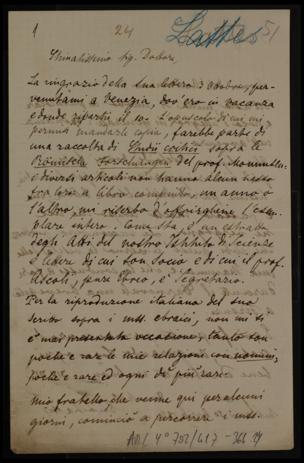 1
24
Lattes
51
Stimatissimo Sig. Dottore,
La ringrazio della sua lettera 3 ottobre, per-
venutami a Venezia, dov'ero in vacanza
e donde ripartii il 10. L'opuscolo di cui mi
permisi mandarle copia, farebbe parte di
una raccolta di Studii critici sopra le
Römische Forschungen del prof. Mommsen:
i diversi articoli non hanno alcun nesso
fra loro a libro compiuto, un anno o
l'altro, mi riserbo d'offrirgliene l'esem-
plare intero. Questa, è un estratto
degli Atti del nostro Istituto di Scienze
e Lettere di cui son Socio e di cui il prof.
Ascoli, pure Ebreo, è Segretario.
Per la riproduzione italiana del suo
scritto sopra i mss. ebraici, non mi si
è mai presentata occasione, tanto son
poche e rare le mie relazioni con uomini,
poche e rare ed ogni dì più rare.
Mio fratello, che venne qui per alcuni
giorni, cominciò a percorrere i mss.